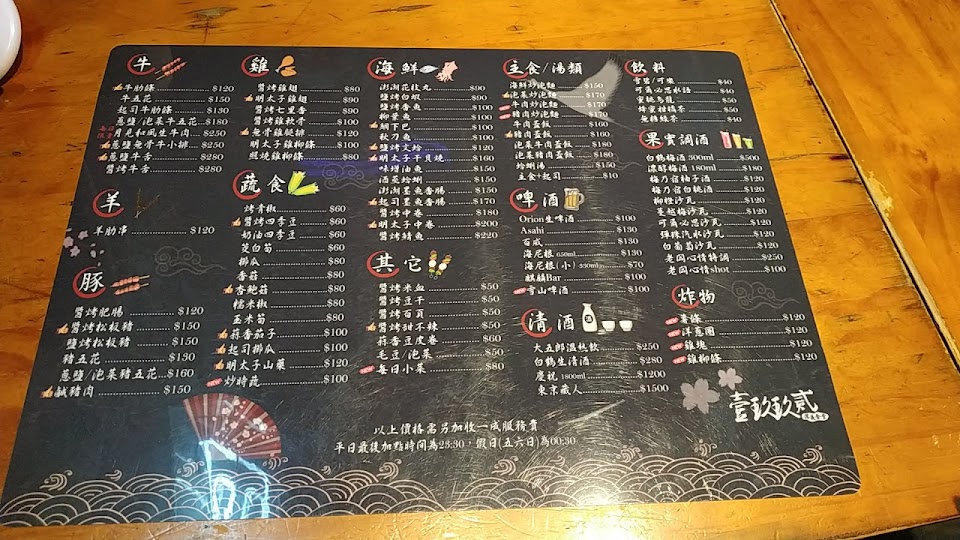 牛
牛肋條 $120
牛五花 $150
起司牛肋條 $130
蔥鹽/泡菜牛五花 $180
月見和風生牛肉 $250
蔥鹽無骨牛小排 $250
蔥鹽牛舌 $280
醬烤牛舌 $280
羊
羊肋串 $120
豚
醬烤肥腸 $120
醬烤松板豬 $150
鹽烤松板豬 $150
豬五花 $130
蔥鹽/泡菜豬五花 $160
鹹豬肉 $150
雞
醬烤雞翅 $80
明太子雞翅 $90
醬烤七里香 $90
醬烤雞軟骨 $100
無骨雞腿排 $120
明太子雞柳條 $120
照燒雞柳條 $80
蔬食
烤青椒 $60
醬烤四季豆 $60
奶油四季豆 $60
茭白筍 $60
櫛瓜 $80
香菇 $80
杏鮑菇 $80
糯米椒 $80
玉米筍 $80
蒜香茄子 $100
起司櫛瓜 $100
明太子山藥 $120
NEW 炒時蔬 $100
海鮮
澎湖花枝丸 $90
鹽烤白蝦 $90
鹽烤香魚 $100
柳葉魚 $100
鯛下巴 $100
秋刀魚 $100
鹽烤文蛤 $120
明太子干貝燒 $160
味增油魚 $150
酒蒸蛤蜊 $150
澎湖墨魚香腸 $150
起司墨魚香腸 $170
醬烤中卷 $180
明太子中卷 $200
醬烤鯖魚 $220
其它
醬烤米血 $50
醬烤豆干 $50
醬烤百頁 $50
醬烤甜不辣 $50
蒜香豆皮卷 $50
毛豆/泡菜 $50
NEW 每日小菜 $80
主食/湯類
海鮮炒泡麵 $150
泡菜炒泡麵 $170
牛肉炒泡麵 $170
豬肉炒泡麵 $170
牛肉蓋飯 $180
豬肉蓋飯 $180
泡菜牛肉蓋飯 $180
泡菜豬肉蓋飯 $180
蛤蜊湯 $150
主食+起司 $80
啤酒
Orion生啤酒 $100
Asahi $130
百威 $130
海尼根 650ml $130
海尼根(小) 330ml $70
麒麟Bar $100
NEW 雪山啤酒 $100
清酒
大五郎溫熱飲 $250
白鶴生清酒 $280
慶祝 1800ml $1200
東京藏人 $1500
飲料
雪碧/可樂 $40
可爾必思水語 $40
蜜桃烏龍 $50
蜂蜜柑橘茶 $50
無糖綠茶 $40
果實調酒
白鶴梅酒 300ml $500
濃醇梅酒 180ml $180
梅乃宿柚子酒 $120
梅乃宿白桃酒 $120
柳橙沙瓦 $120
蔓越梅沙瓦 $120
可爾必思沙瓦 $120
彈珠汽水沙瓦 $120
白葡萄沙瓦 $120
老闆心情特調 $250
老闆心情shot $100
炸物
NEW 薯條 $120
NEW 洋蔥圈 $120
NEW 雞塊 $120
NEW 雞柳條 $120
壹玖玖貳
以上價格需另加收一成服務費
平日最後加點時間為23:30,假日(五六日)為00:30